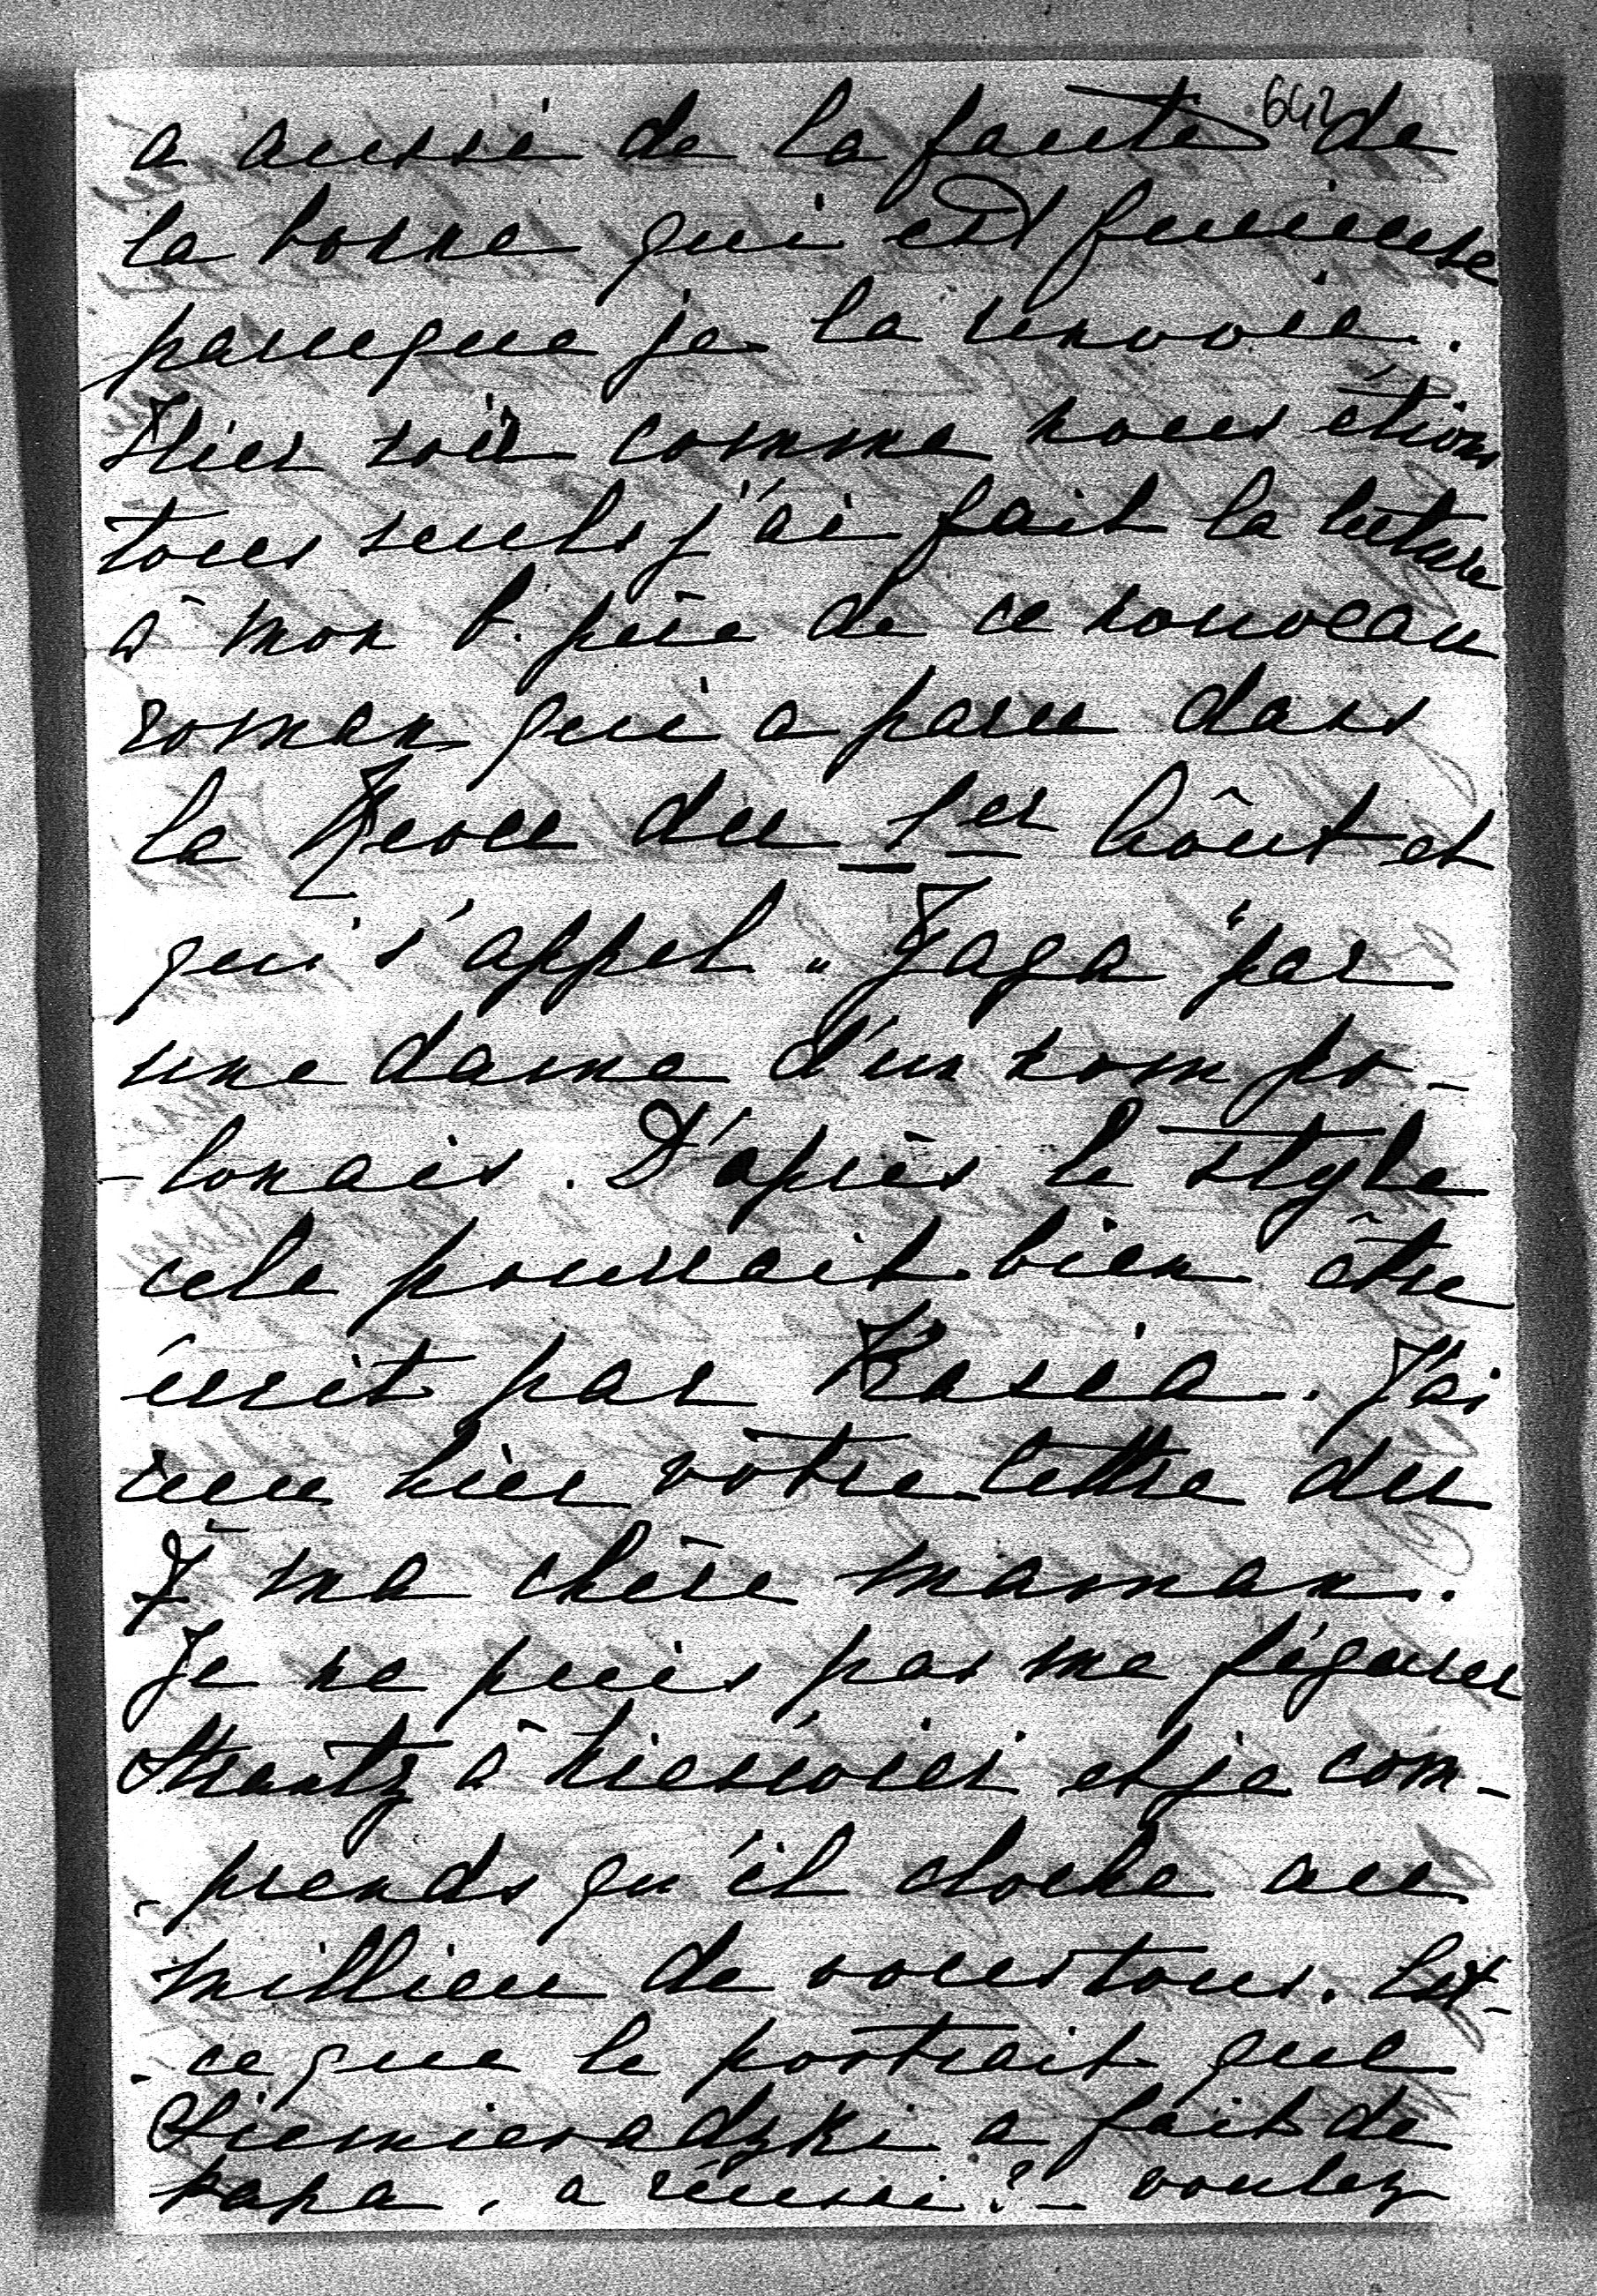 642
a aussi de la faute de
la bonne qui est furieuse
parceque je la renvoie.
Hier soir comme nous étions
tous seuls j'ai fait la lecture
à mon b. père de ce nouveau
roman qui a paru dans
la Revue du 1er Aôut et
qui s'appel „Jaga" par
une dame d'un nom po-
-lonais. D'après le style
cela pourrait bien être
écrit par Kasia. J'ai
reçu hier vôtre lettre du
7 ma chère maman.
Je ne puis pas me figurer
Strantz à et je com-
-prends qu'il cloche au
millieu de vous tous. Est-
-ce que le portrait que
Siemieradzki a fait de
papa, a réussi? – voulez